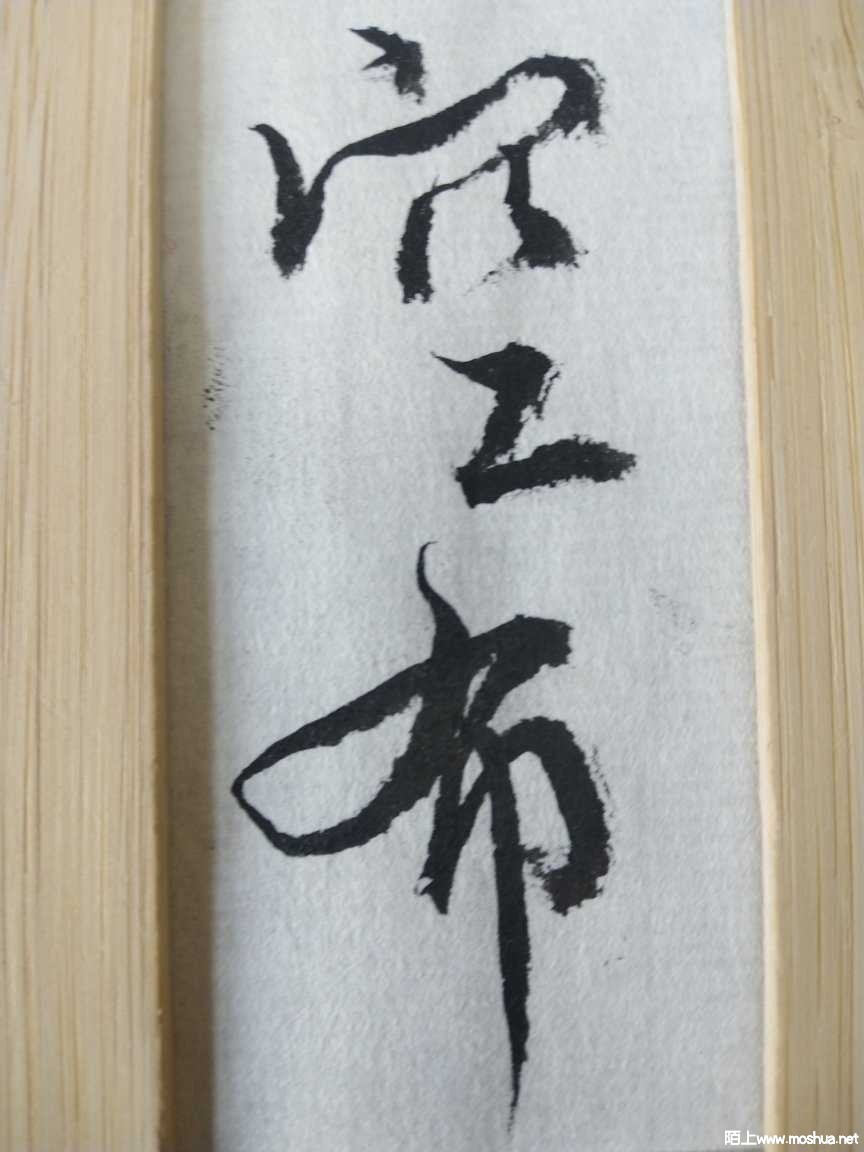 空布
陌上www.moshua.net